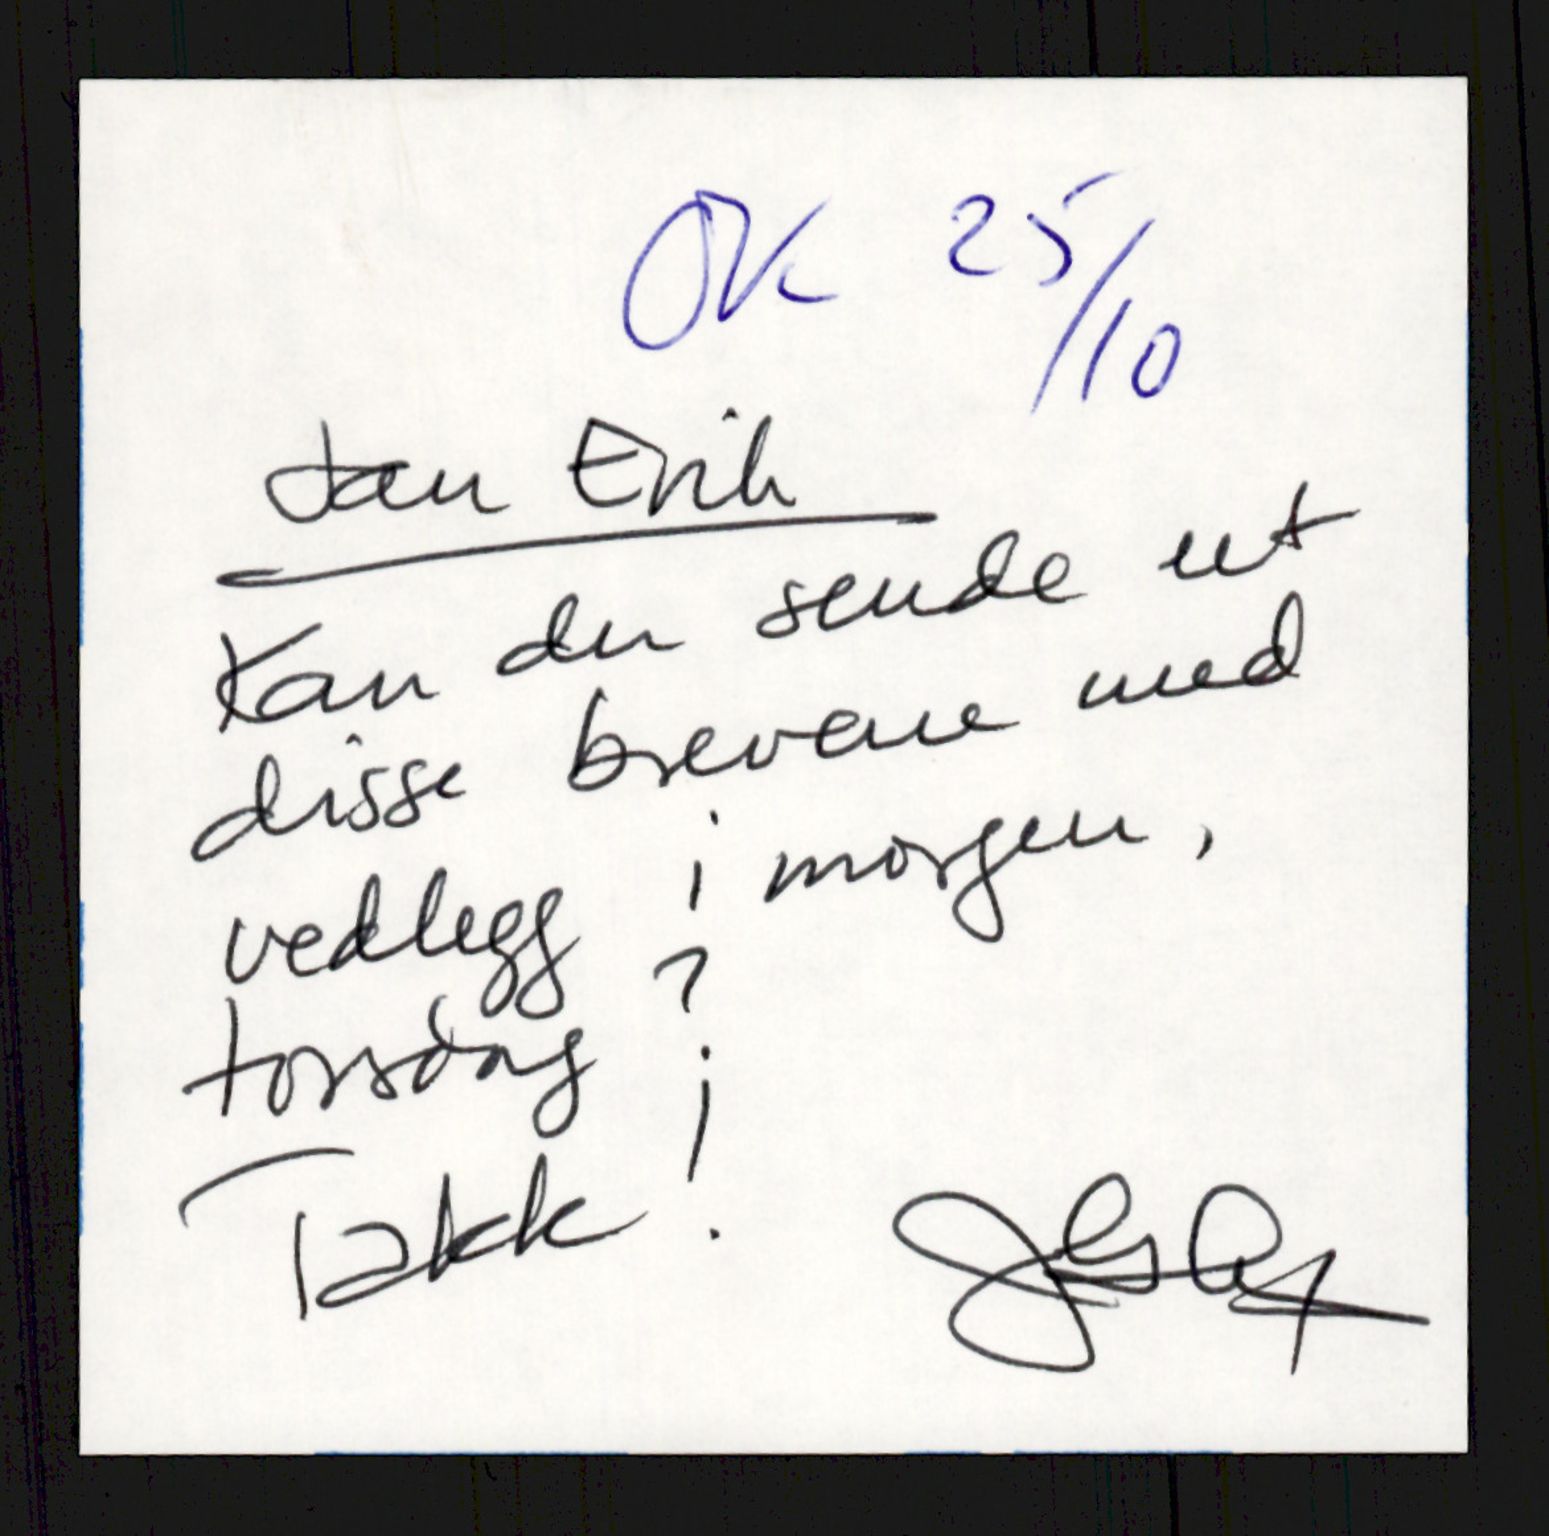 OK 25/10
Jan Erik
Kan du sende ut
disse brevene med
vedlegg i morgen,
torsdag?
Takk!